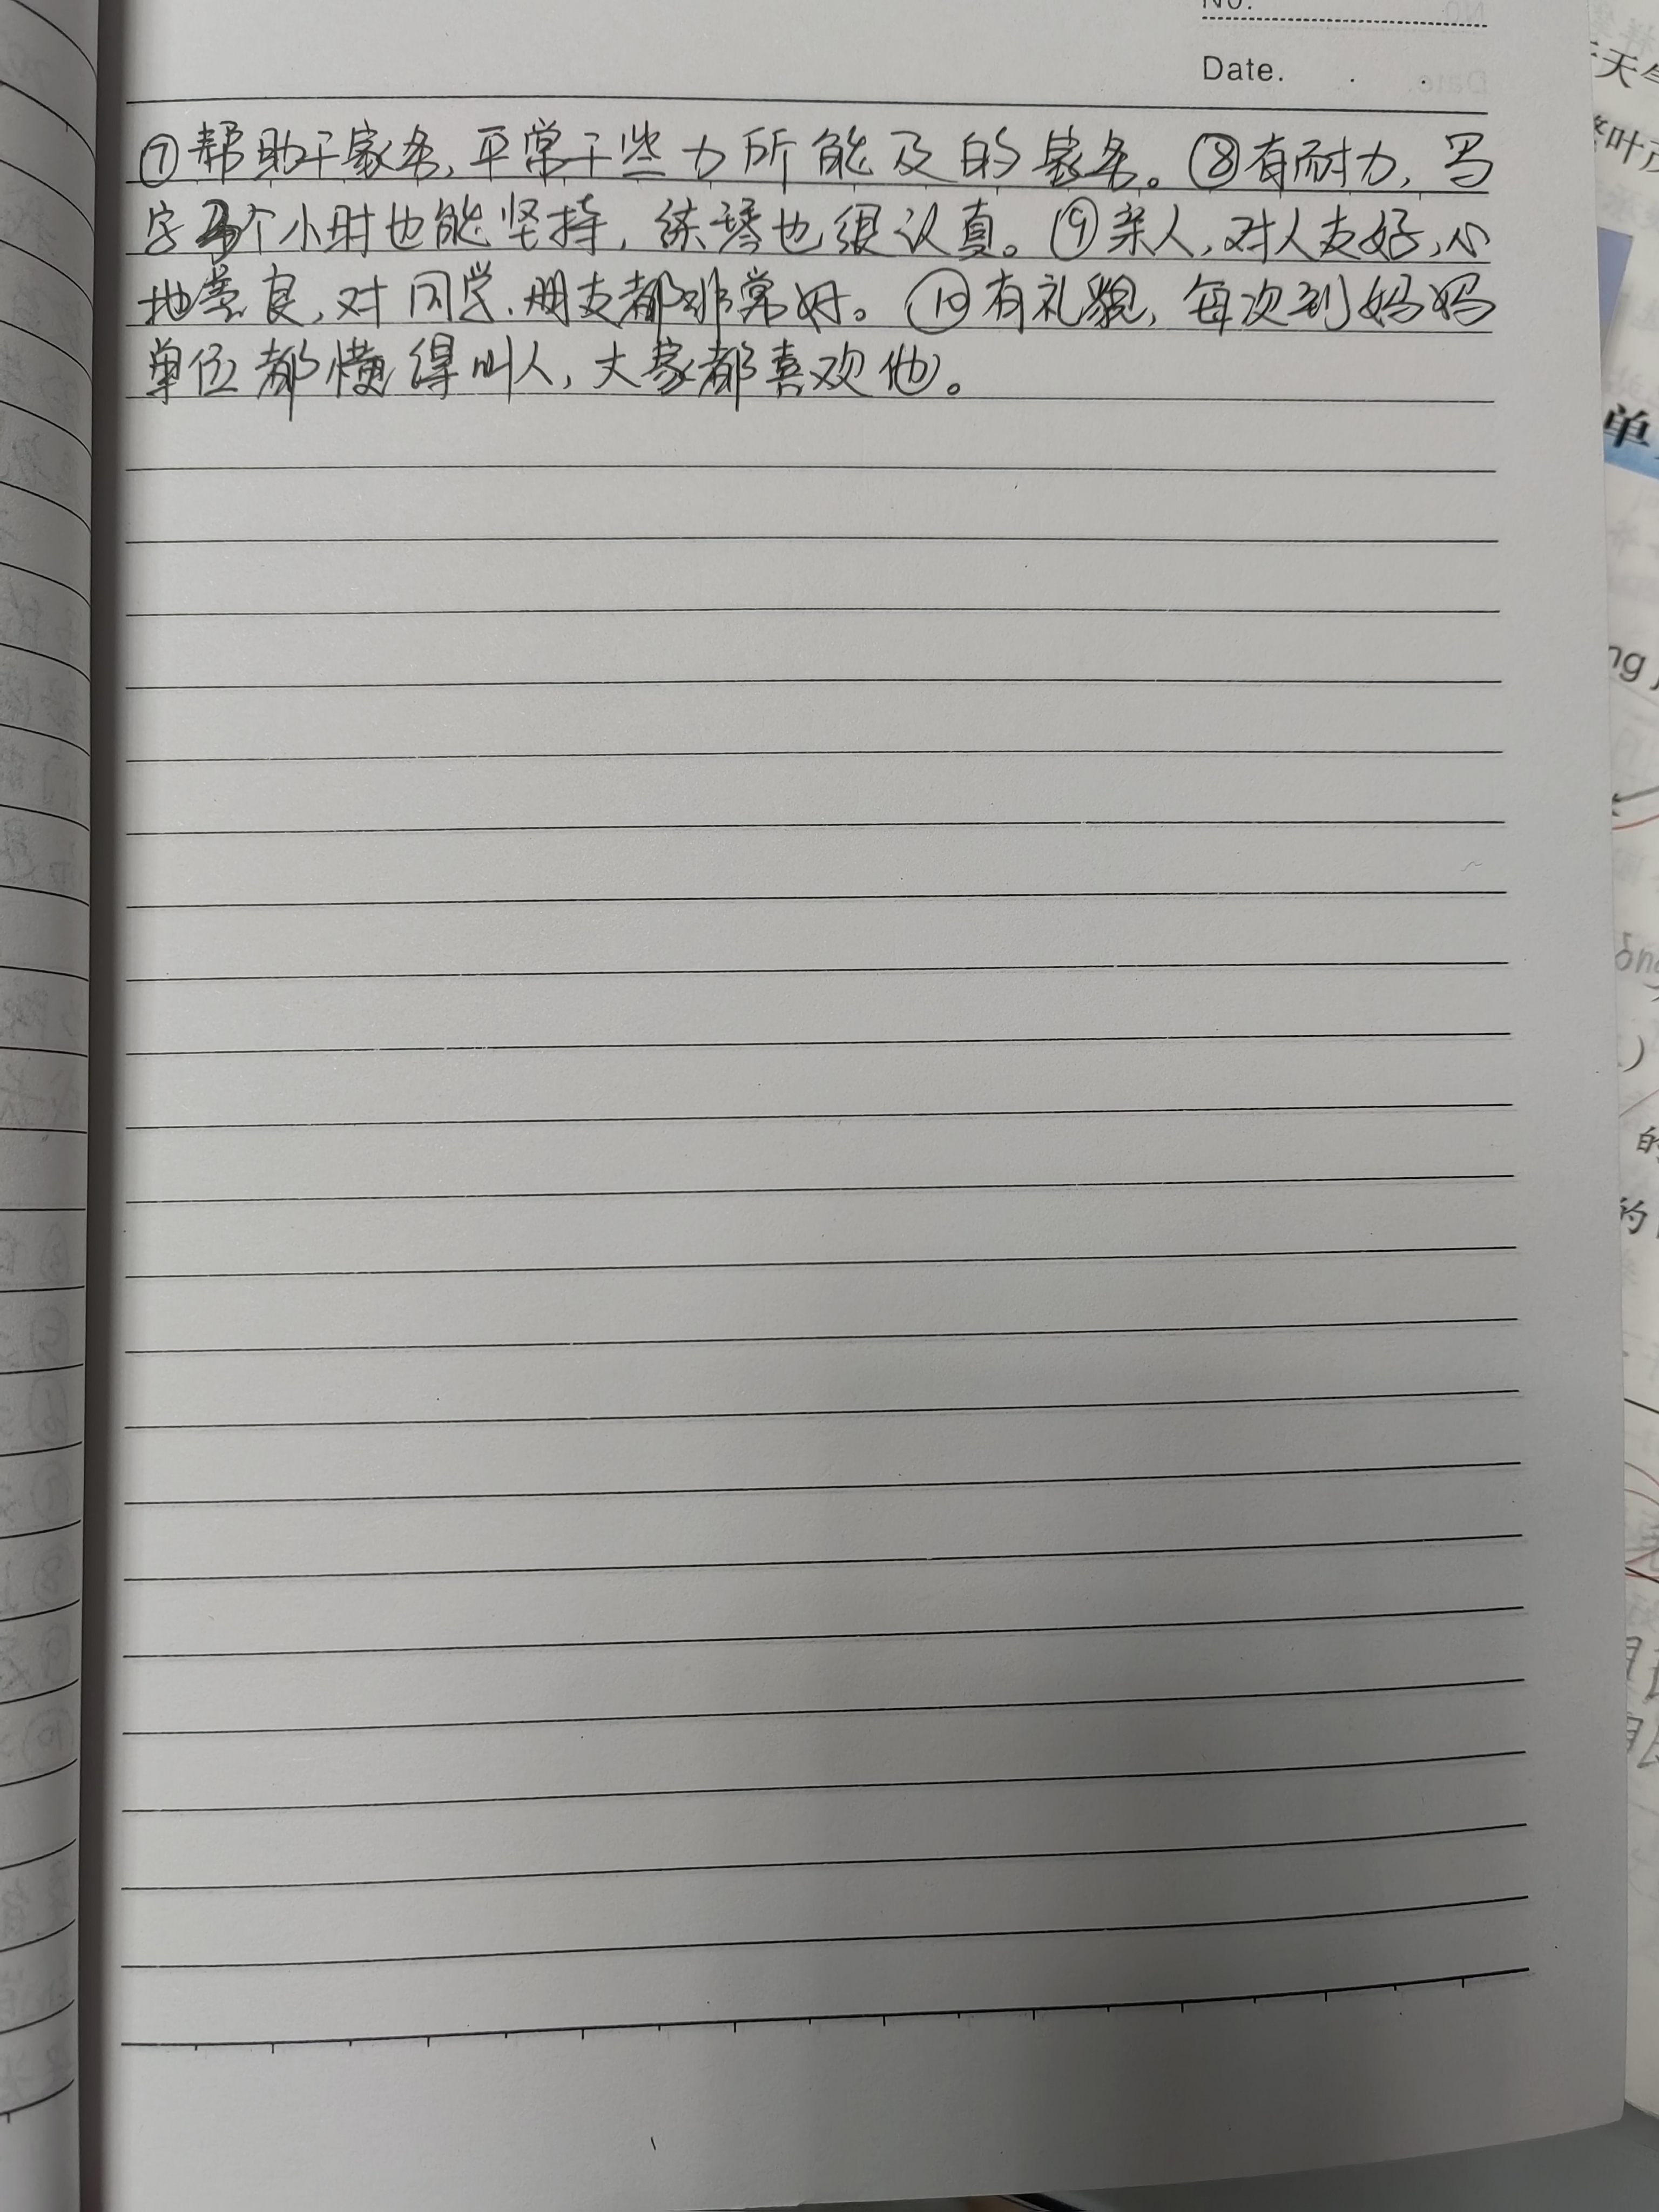 No.
Date.
⑦帮助干家务,平常干些力所能及的家务。⑧有耐力,写
字个小时也能坚持,练琴也很认真。⑨亲人,对人友好,心
地善良,对同学、朋友都非常好。⑩有礼貌,每次到妈妈
单位都懂得叫人,大家都喜欢他。
天
叶
单
ng
的
的